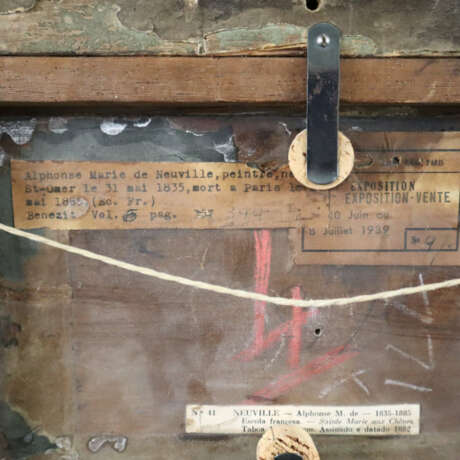 Alphonse Marie de Neuville, peintre,
St-Omer le 31 mai 1835, mort a Paris le
mai 1885 (ec. Fr.)
Benezit Vol. pag. 344
EXPOSITION
EXPOSITION-VENTE
10 Juin au
8 Juillet 1939
No 9
Nº 41 NEUVILLE — Alphonse M. de — 1835-1885
Escola francesa. — Sainte Marie aux Chênes
Taboa Assinado e datado 1882